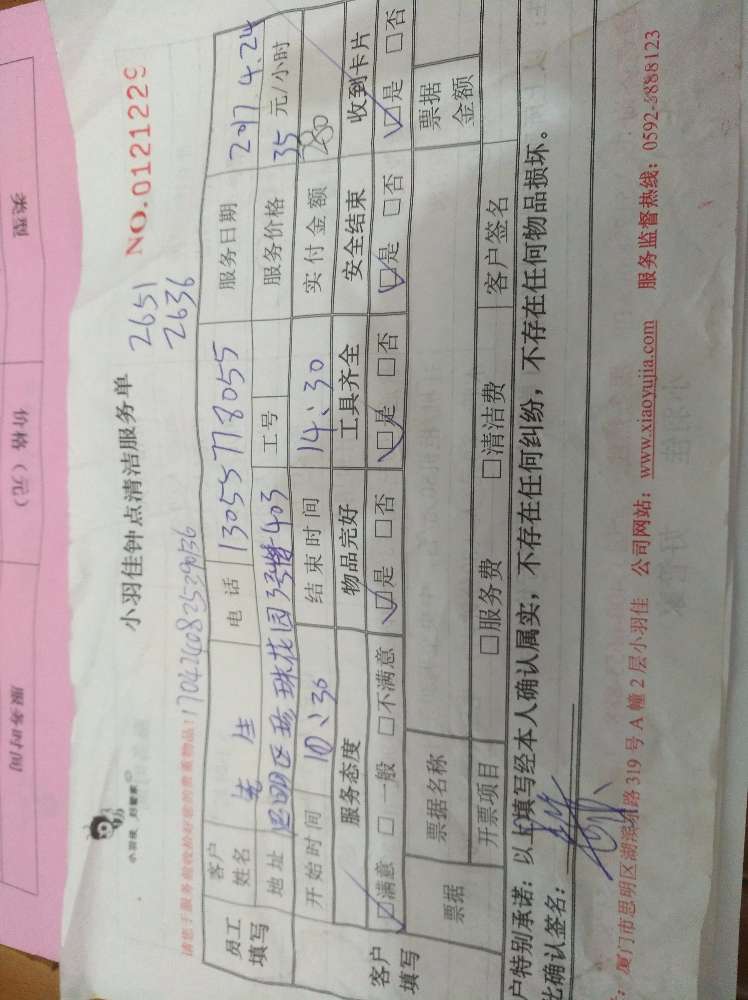 类型
价格（元）
服务时间
小羽佳 好管家
小羽佳钟点清洁服务单
NO.0121229
2651
2636
请您于服务前收拾好您的贵重物品！
员工填写
客户姓名
先生
电话
13055778055
服务日期
2017 4.24
地址
思明区珍珠花园
403
工号
服务价格
35 元/小时
开始时间
10:30
结束时间
14:30
实付金额
280
客户填写
服务态度 物品完好 工具齐全 安全结束 收到卡片
☑满意 □一般 □不满意 ☑是 □否 ☑是 □否 ☑是 □否 ☑是 □否
票据
票据名称
票据金额
开票项目
□服务费 □清洁费
客户签名
户特别承诺：以上填写经本人确认属实，不存在任何纠纷，不存在任何物品损坏。
此确认签名：
：厦门市思明区湖滨东路 319 号 A 幢 2 层小羽佳 公司网站：www.xiaoyujia.com 服务监督热线：0592-3888123